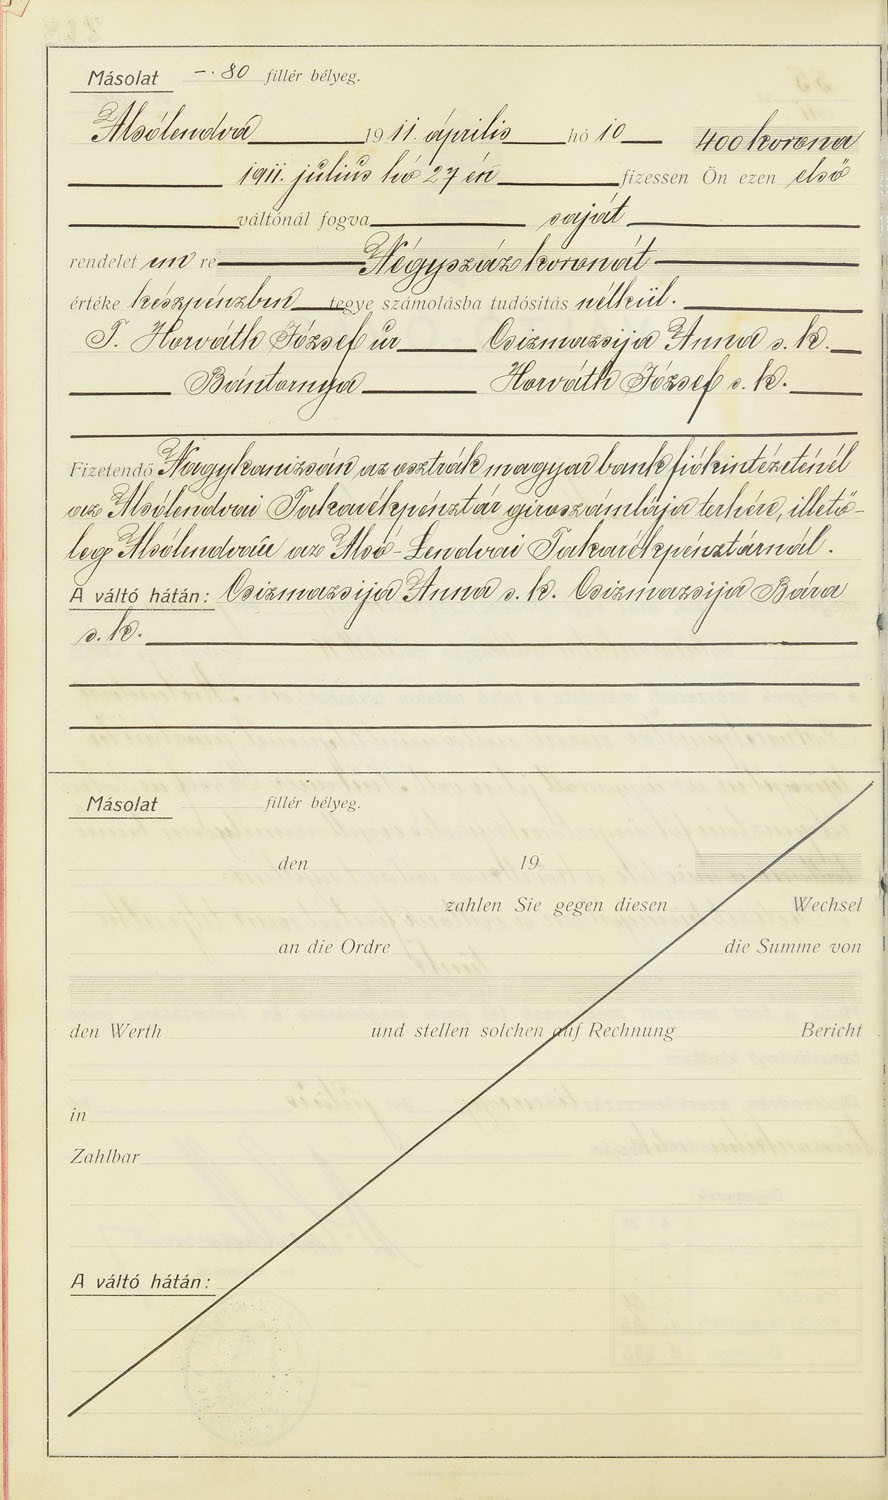 Másolat –·80 fillér bélyeg.
Alsólendva 1911. április hó 10 400 korona
1911. július hó 27 én fizessen Ön ezen első
váltónál fogva saját
rendeletemre Négyszáz koronát
értéke készpénzben tegye számolásba tudósítás nélkül.
T. Horváth József úr Csizmazsija Anna s. k.
Bántornya Horváth József s. k.
Fizetendő Nagykanizsán az osztrák magyar bank fiókintézeténél
az Alsólendvai Takarékpénztár giroszámlája terhére, illető-
leg Alsólendván az Alsó-Lendvai Takarékpénztárnál.
A váltó hátán: Csizmazsija Anna s. k. Csizmazsija Bára
s. k.
Másolat fillér bélyeg.
den 19
zahlen Sie gegen diesen Wechsel
an die Ordre die Summe von
den Werth und stellen solchen auf Rechnung Bericht
in
Zahlbar
A váltó hátán: